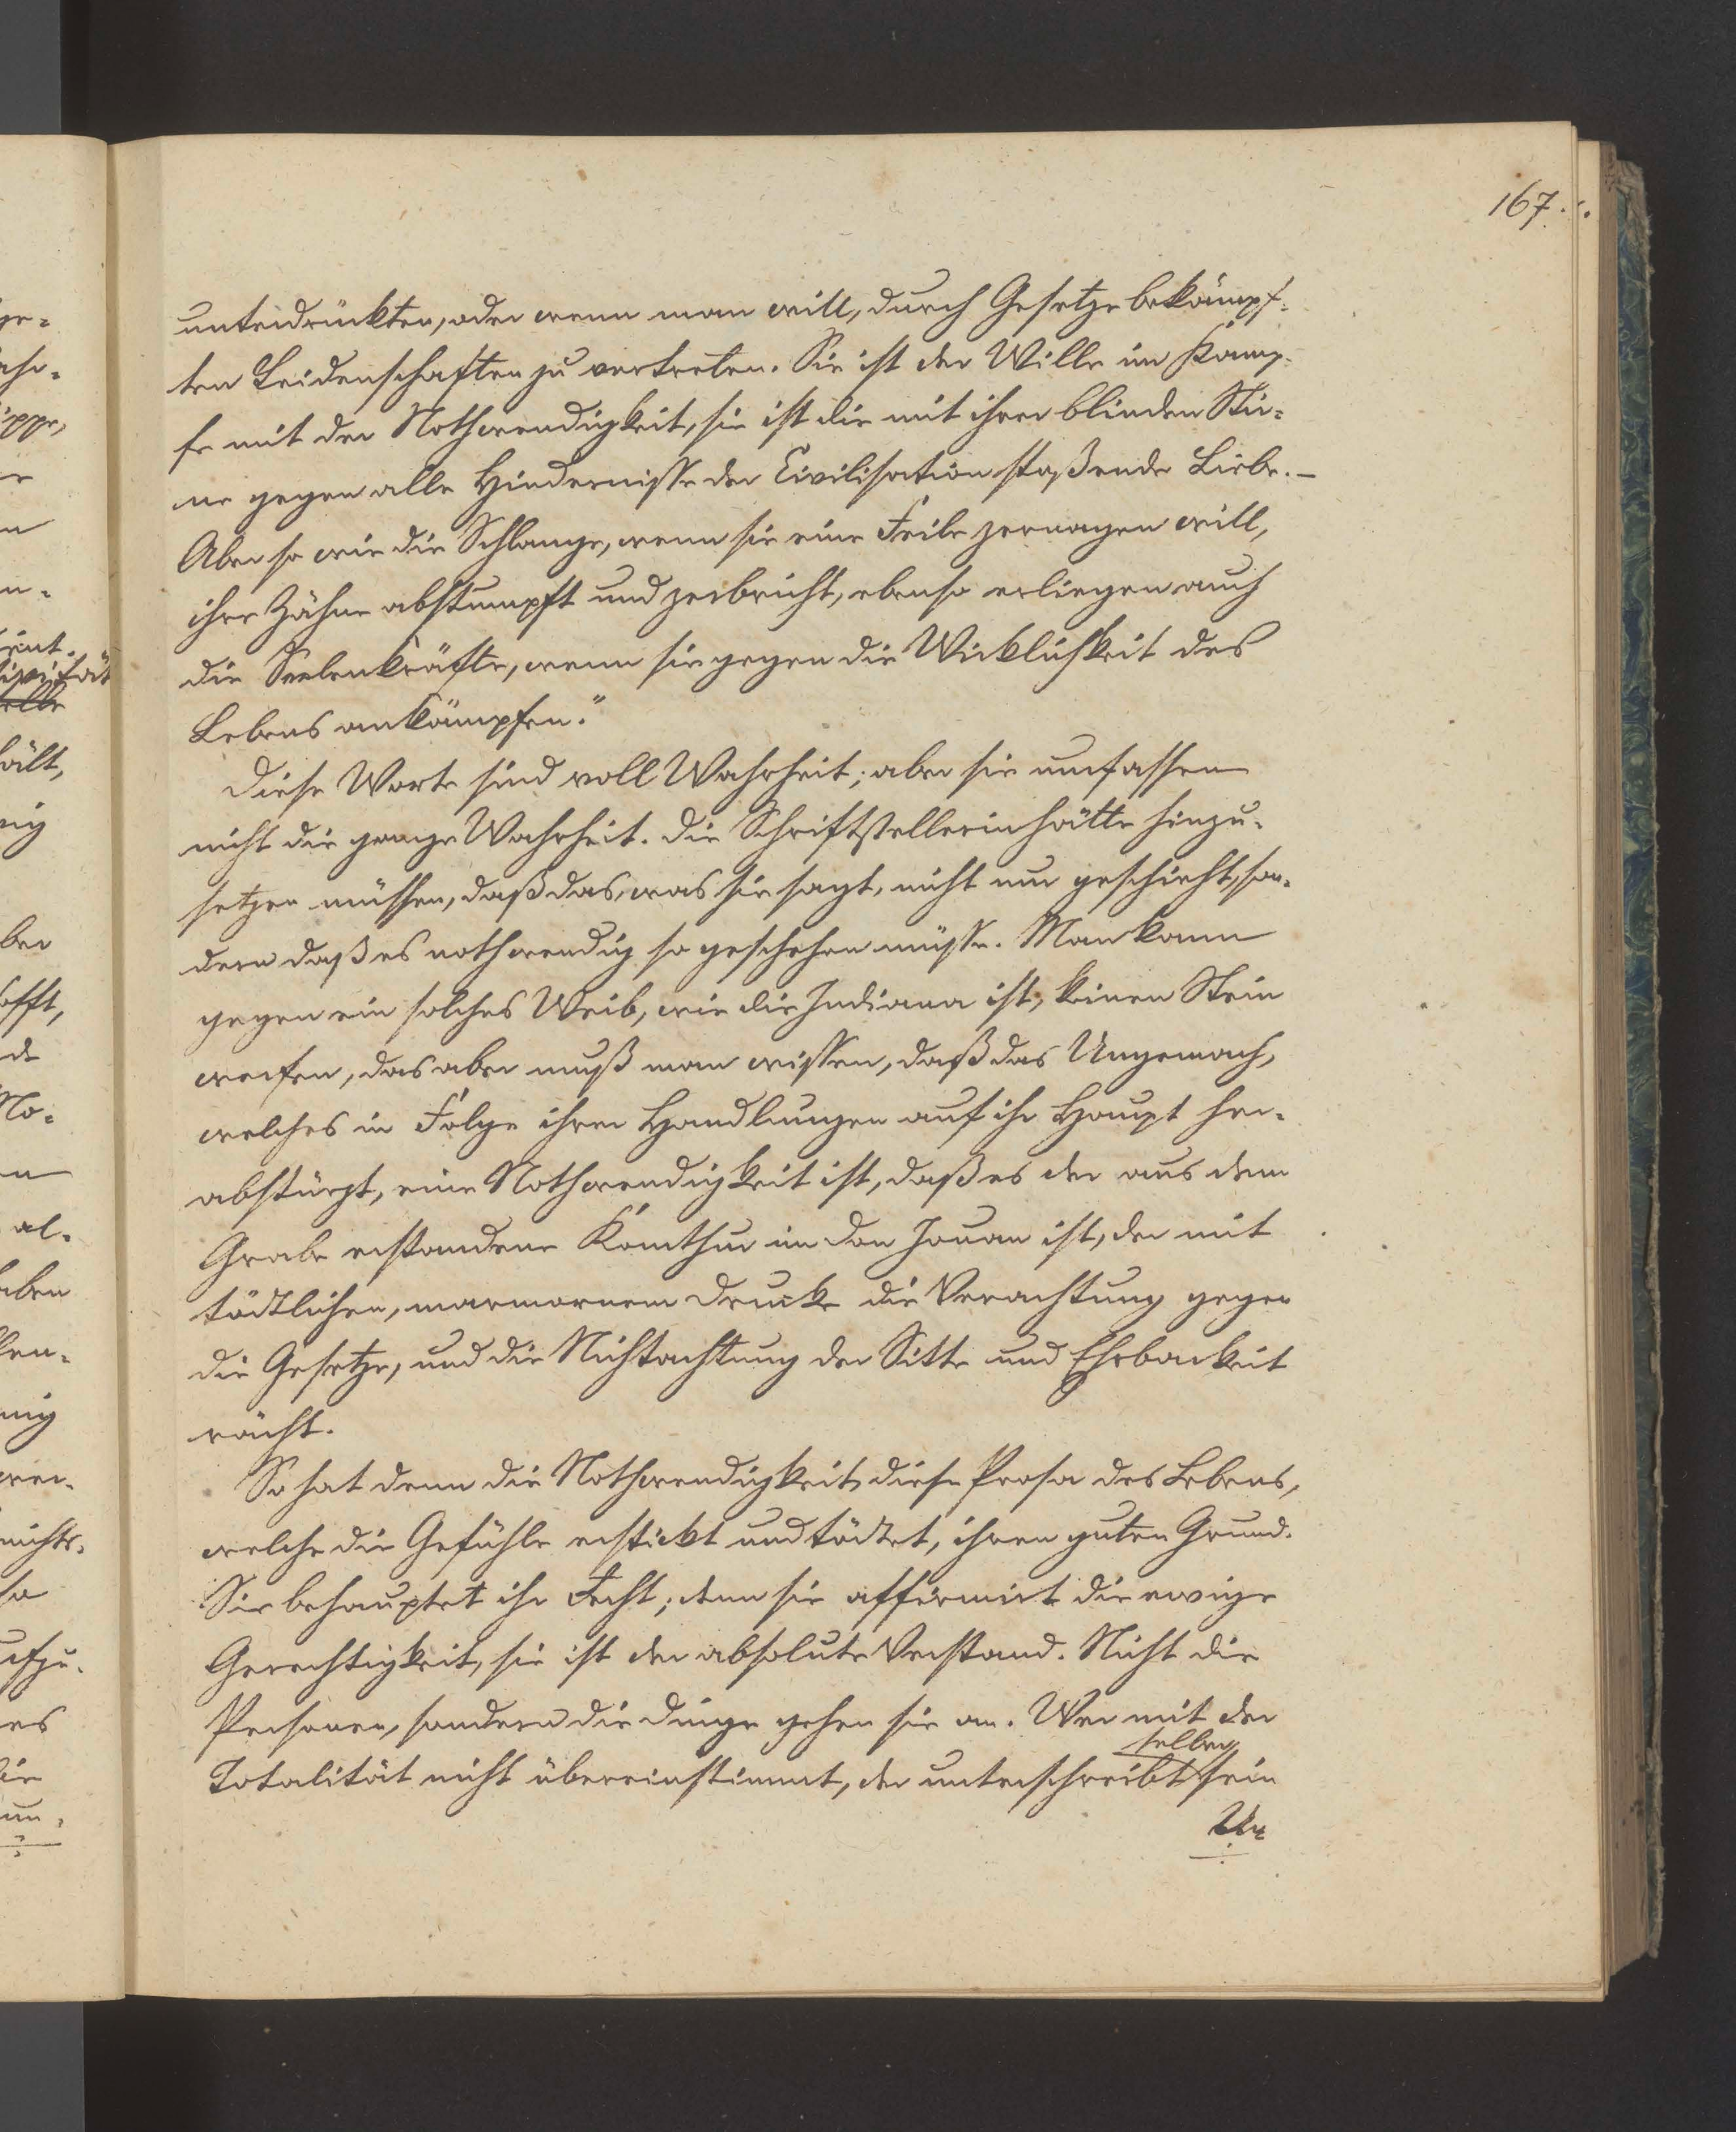 167.
unterdrückten, oder wenn man will, durch Gesetze bekämpf-
ten Leidenschaften zu vertreten. Sie ist der Wille im Kamp-
fe mit der Nothwendigkeit, sie ist die mit ihrer blinden Stir-
ne gegen alle Hindernisse der Civilisation stoßende Liebe. –
Aber so wie die Schlange, wenn sie eine Feile zernagen will,
ihre Zähne abstumpft und zerbricht, ebenso erliegen auch
die Seelenkräfte, wenn sie gegen die Wirklichkeit des
Lebens ankämpfen."
Diese Worte sind voll Wahrheit; aber sie umfassen
nicht die ganze Wahrheit. Die Schriftstellerin hätte hinzu-
setzen müssen, daß das, was sie sagt, nicht nur geschieht, son-
dern daß es nothwendig so geschehen müsse. Man kann
gegen ein solches Weib, wie die Indiana ist, keinen Stein
werfen, das aber muß man wissen, daß das Ungemach,
welches in Folge ihrer Handlungen auf ihr Haupt her-
abstürzt, eine Nothwendigkeit ist, daß es der aus dem
Grabe erstandene Komthur im Don Jouan ist, der mit
tödtlichen, marmornem Drucke die Verachtung gegen
die Gesetze, und die Nichtachtung der Sitte und Ehrbarkeit
rächt.
So hat denn die Nothwendigkeit, diese Prosa des Lebens,
welche die Gefühle erstickt und tödtet, ihren guten Grund.
Sie behauptet ihr Recht; denn sie affirmirt die ewige
Gerechtigkeit, sie ist der absolute Verstand. Nicht die
Personen, sondern die Dinge gehen sie an. Wer mit der
selber
Totalität nicht übereinstimmt, der unterschreibt sein
Ur-